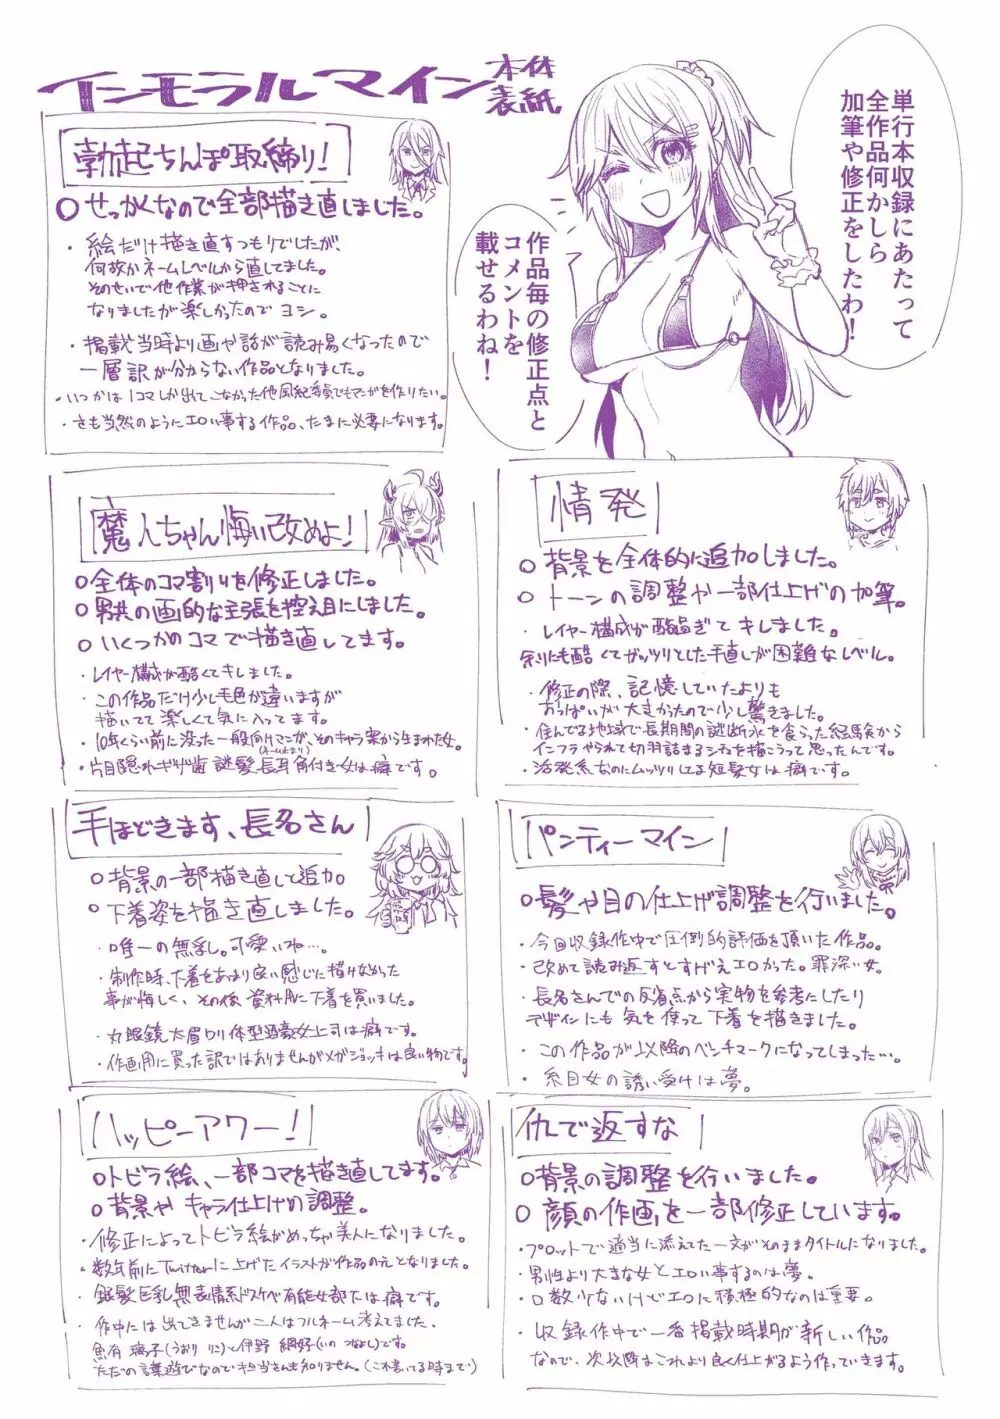 インモラルマイン 本体表紙
単行本収録にあたって
全作品何かしら
加筆や修正をしたわ！
作品毎の修正点と
コメントを
載せるわね！
勃起ちんぽ取締り！
○せっかくなので全部描き直しました。
・絵だけ描き直すつもりでしたが、
何故かネームレベルから直してました。
そのせいで他作業が押されることに
なりましたが楽しかったのでヨシ。
・掲載当時より画や話が読み易くなったので
一層訳が分からない作品となりました。
・いつかは1コマしか出てこなかった他風紀委員でもマンガを作りたい。
・さも当然のようにエロい事する作品、たまに必要になります。
魔人ちゃん悔い改めよ！
○全体のコマ割りを修正しました。
○男共の画的な主張を控え目にしました。
○いくつかのコマで描き直してます。
・レイヤー構成が酷くてキレました。
・この作品だけ少し毛色が違いますが
描いてて楽しくて気に入ってます。
・10年くらい前に没った一般向けマンガ、そのキャラ案から生まれた女。
(ネーム止まり)
・片目隠れギザ歯謎髪長耳角付き女は癖です。
情発
○背景を全体的に追加しました。
○トーンの調整や一部仕上げの加筆。
・レイヤー構成が酷過ぎてキレました。
余りにも酷くてガッツリとした手直しが困難なレベル。
・修正の際、記憶していたよりも
おっぱいが大きかったので少し驚きました。
・住んでる地域で長期間の謎断水を食らった経験から
インフラやられて切羽詰まるシチュを描こうって思ったんです。
・活発系なのにムッツリしてる短髪女は癖です。
手ほどきます、長名さん
○背景の一部描き直しと追加
○下着姿を描き直しました。
・唯一の無乳。可愛いね…。
・制作時、下着をあまり良い感じに描けなかった
事が悔しく、その後資料用に下着を買いました。
・丸眼鏡太眉ロリ体型酒豪女上司は癖です。
・作画用に買った訳ではありませんがメガジョッキは良い物です。
パンティーマイン
○髪や目の仕上げ調整を行いました。
・今回収録作中で圧倒的評価を頂いた作品。
・改めて読み返すとすげえエロかった。罪深い女。
・長名さんでの反省点から実物を参考にしたり
デザインにも気を使って下着を描きました。
・この作品が以降のベンチマークになってしまった…。
・糸目女の誘い受けは夢。
ハッピーアワー！
○トビラ絵、一部コマを描き直してます。
○背景やキャラ仕上げの調整。
・修正によってトビラ絵がめっちゃ美人になりました。
・数年前にTwitterに上げたイラストが作品の元となりました。
・銀髪巨乳無表情系ドスケベ有能女部下は癖です。
・作中には出てきませんが二人はフルネーム考えてました。
魚有 璃子(うおり りこ)と伊野 綱好(いの つなよし)です。
ただの言葉遊びなので担当さんも知りません。(これ書いてる時まで)
仇で返すな
○背景の調整を行いました。
○顔の作画を一部修正しています。
・プロットで適当に添えてた一文がそのままタイトルになりました。
・男性より大きな女とエロい事するのは夢。
・口数少ないけどエロに積極的なのは重要。
・収録作中で一番掲載時期が新しい作品
なので、次以降はこれより良く仕上がるよう作っていきます。